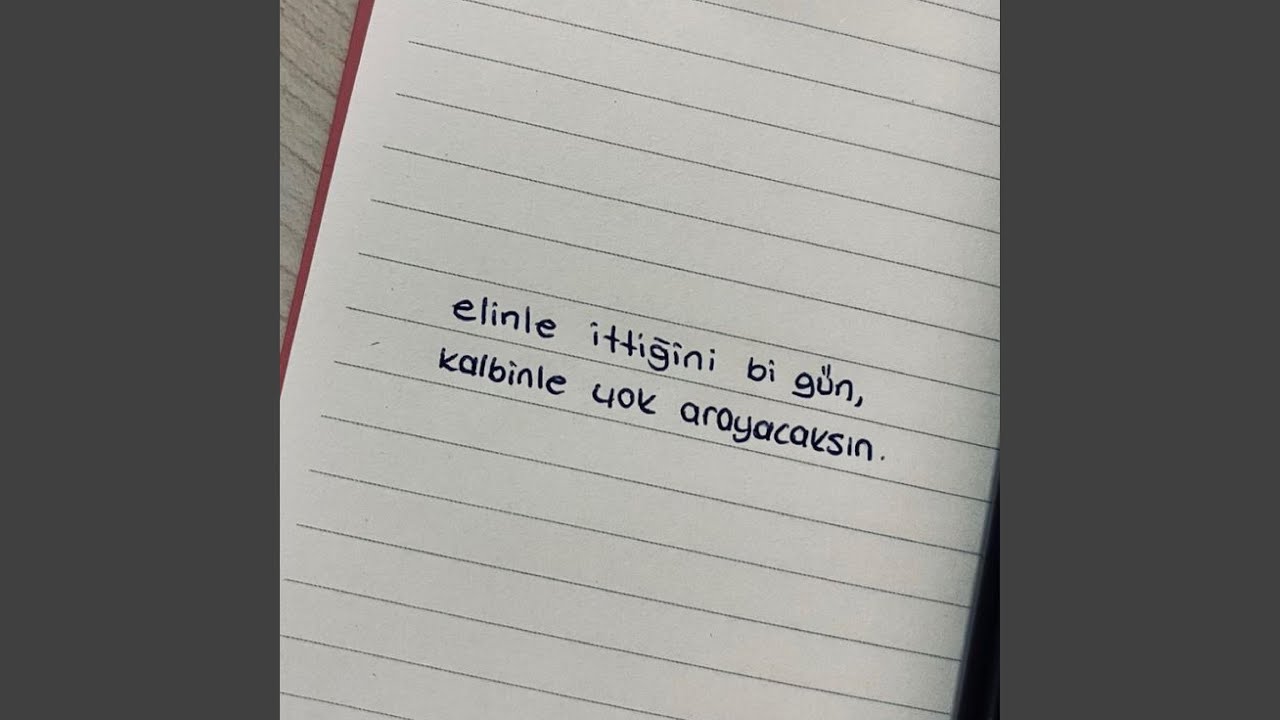 elinle ittiğini bi gün,
kalbinle çok arayacaksın.